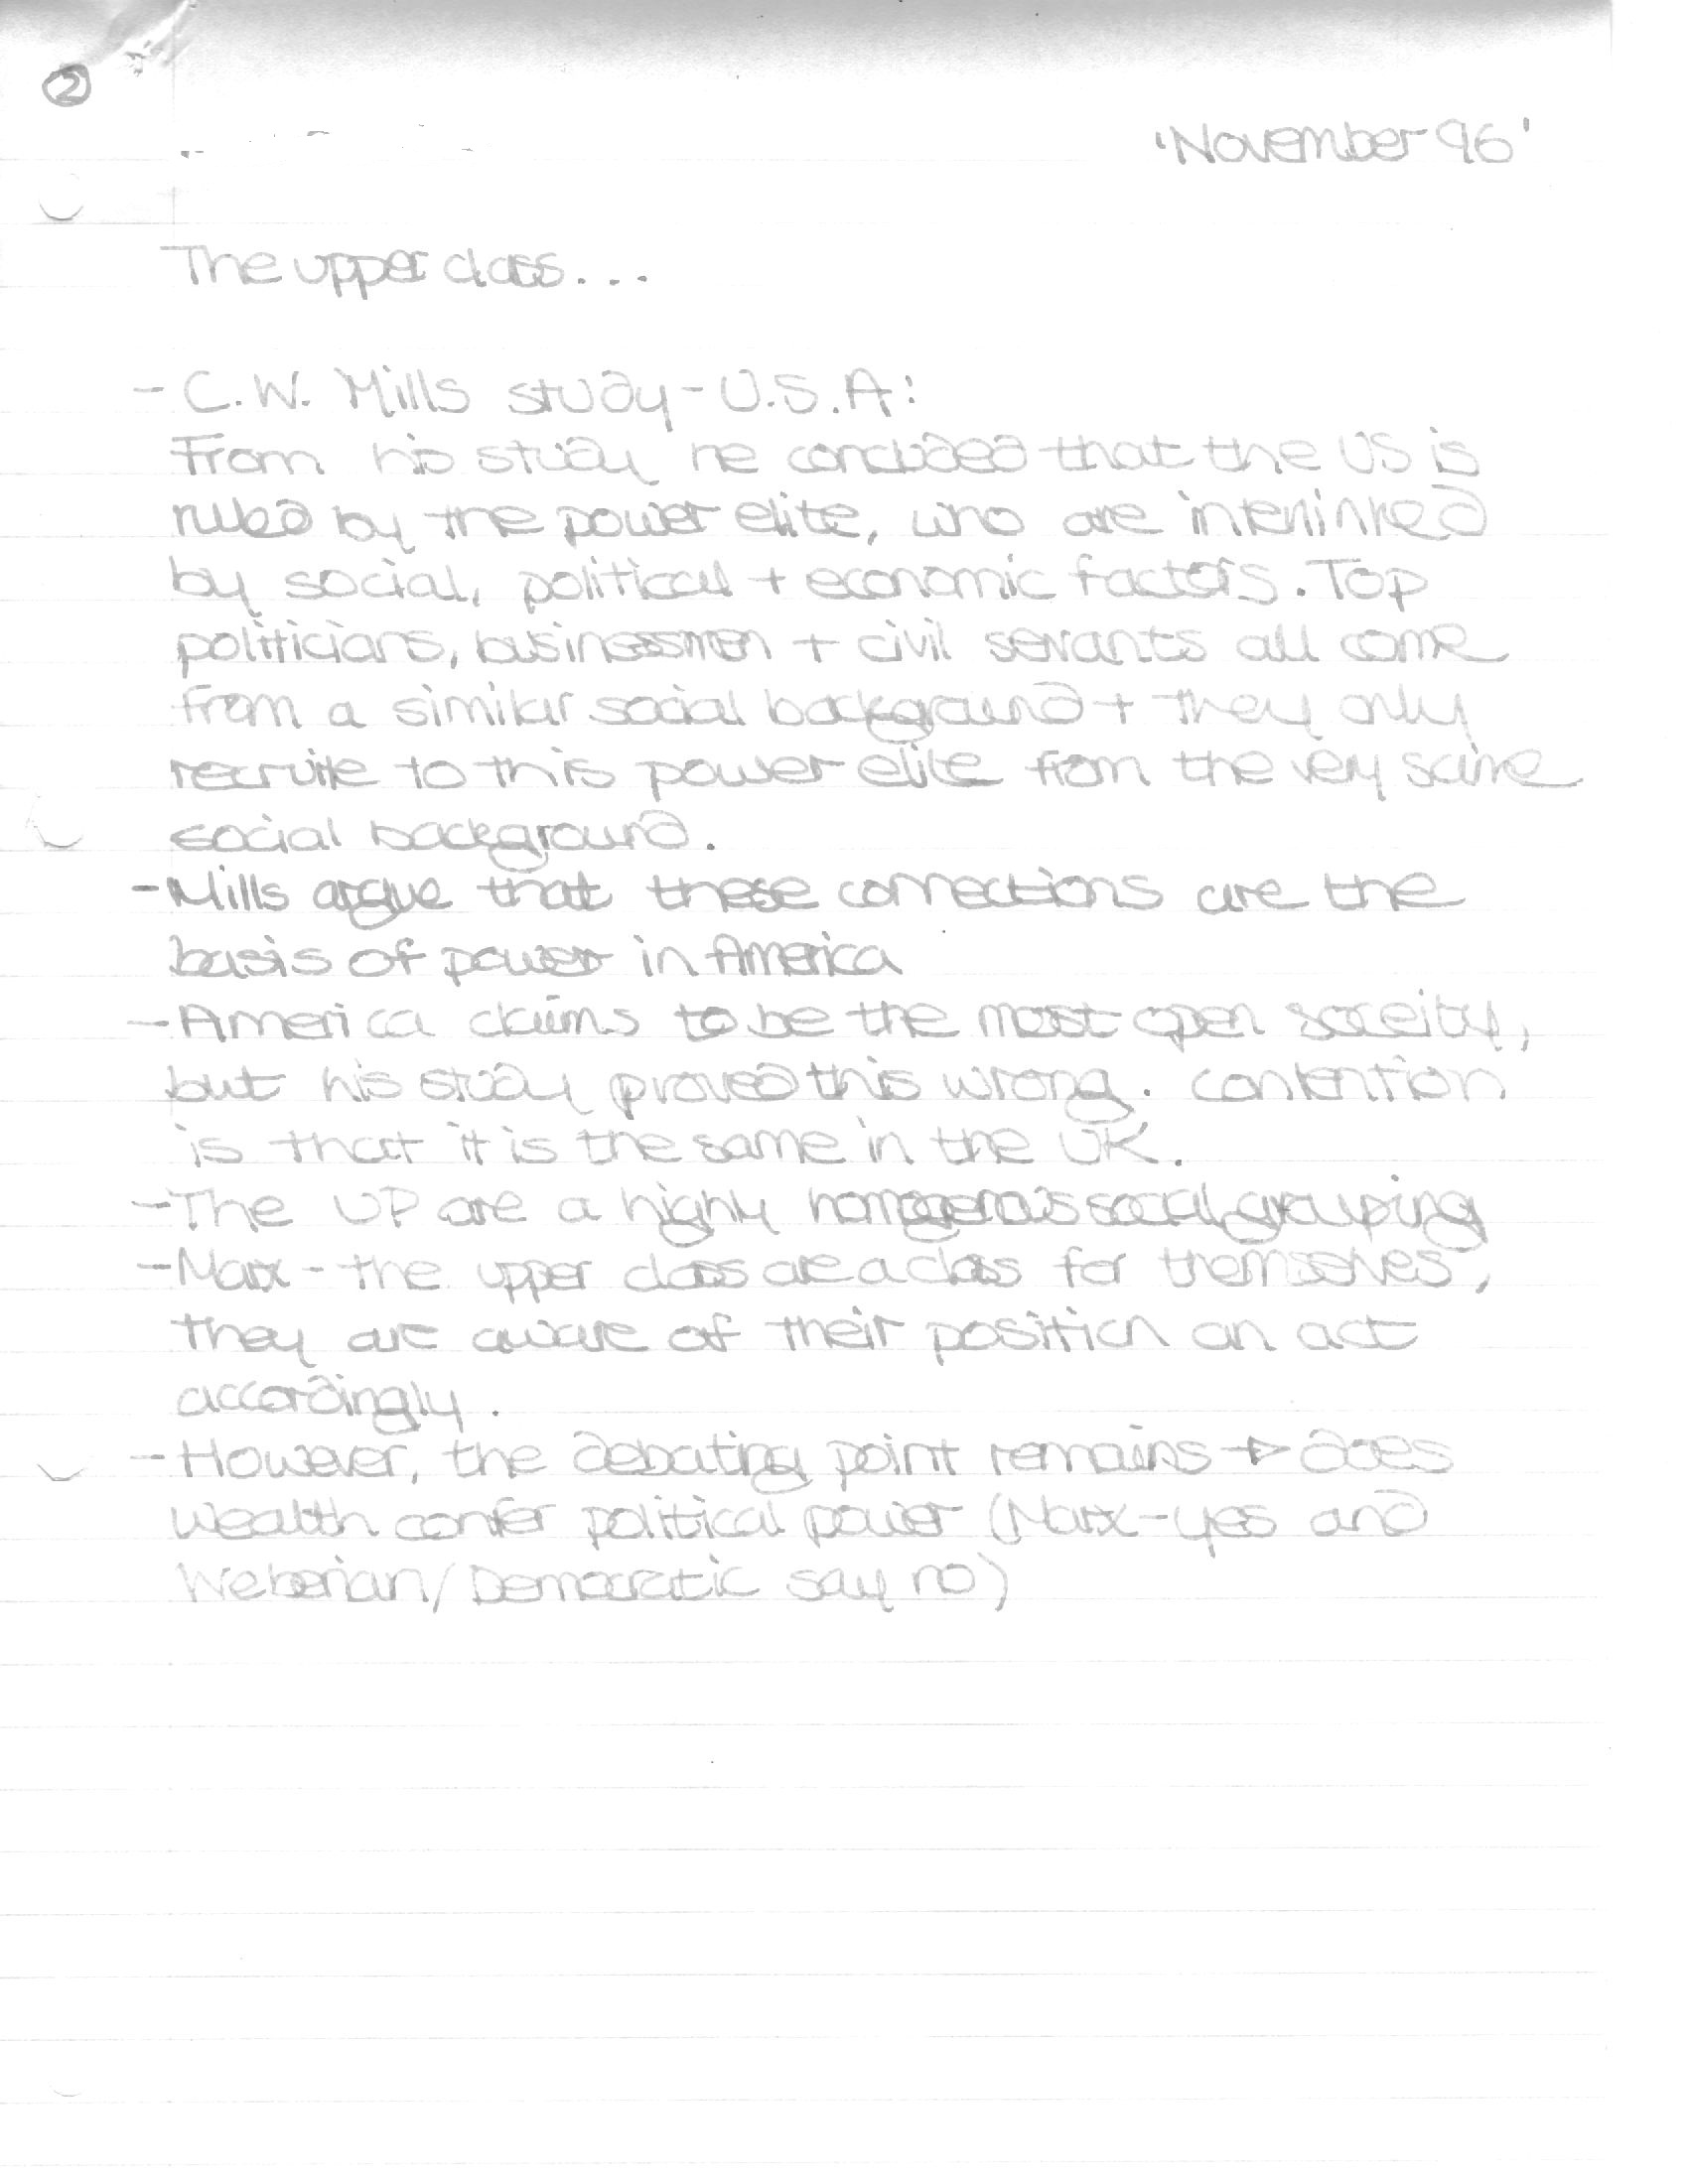 ②
'November 96'
The upper class...
- C.W. Mills study - U.S.A:
From his study he concluded that the US is
ruled by the power elite, who are interlinked
by social, political + economic factors. Top
politicians, businessmen + civil servants all come
from a similar social background + they only
recruite to this power elite from the very same
social background.
- Mills argue that these connections are the
basis of power in America
- America claims to be the most open soceity,
but his study proved this wrong. Contention
is that it is the same in the UK.
- The UP are a highly homogenous social grouping
- Marx - the upper class are a class for themselves,
they are aware of their position an act
accordingly.
- However, the debating point remains → does
wealth confer political power (Marx - yes and
Weberian/Democratic say no)